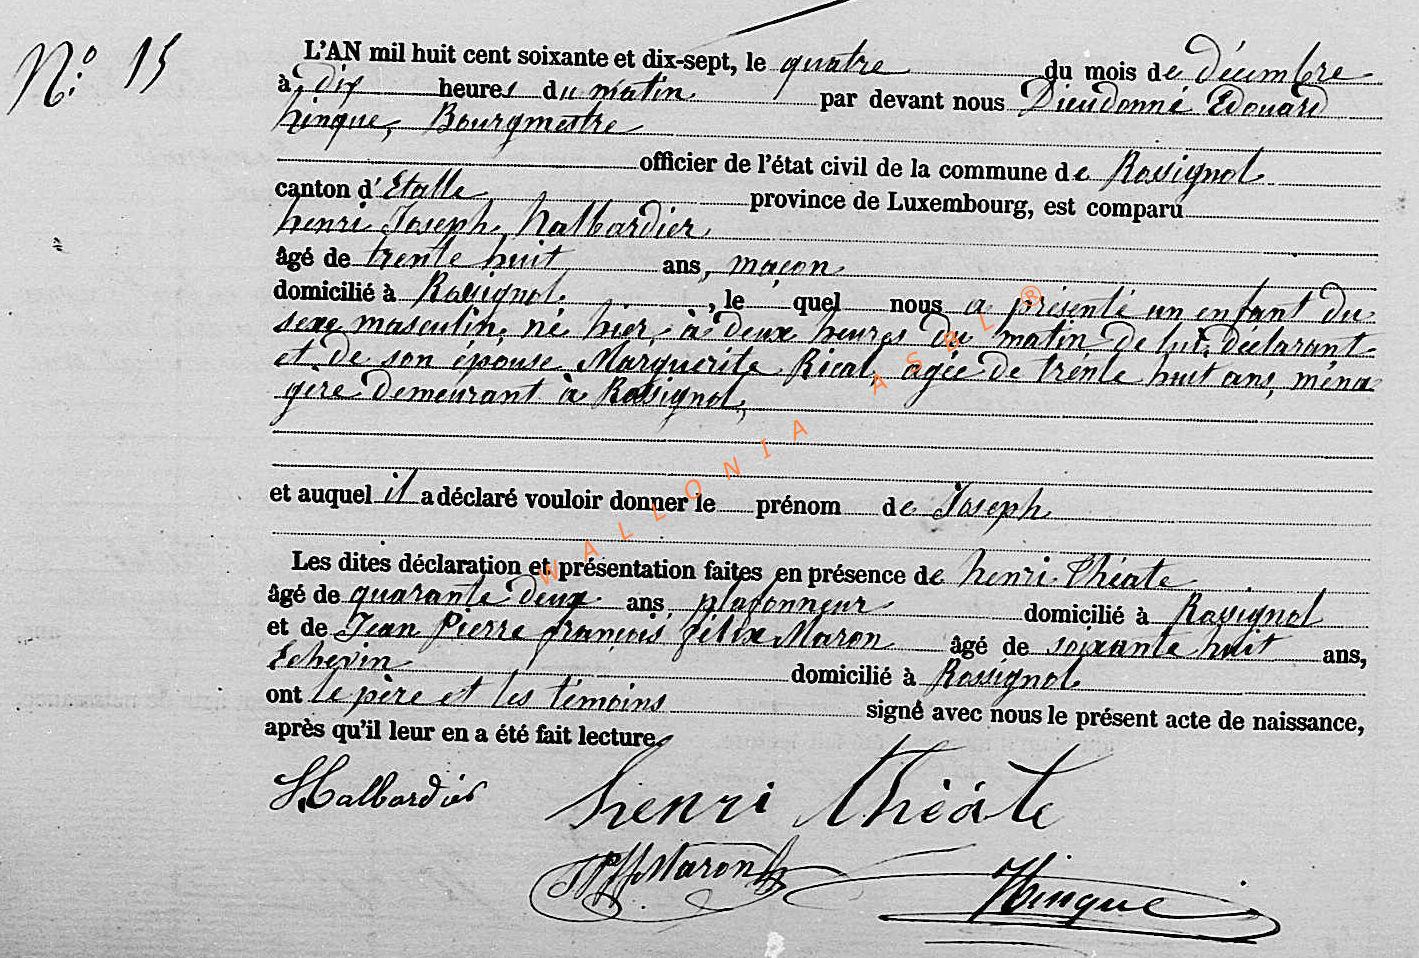 N° 15
L'AN mil huit cent soixante et dix-sept, le quatre du mois de décembre
à dix heures du matin par devant nous Dieudonné Edouard
hinque, Bourgmestre
officier de l'état civil de la commune de Rossignol
canton d'Etalle province de Luxembourg, est comparu
henri Joseph halbardier
âgé de trente huit ans, maçon
domicilié à Rossignol, le quel nous a présenté un enfant du
sexe masculin, né hier, à deux heures du matin de lui, déclarant
et de son épouse Marguerite Rical, agée de trente huit ans, ména
gère demeurant à Rossignol,
et auquel il a déclaré vouloir donner le prénom de Joseph
Les dites déclaration et présentation faites en présence de henri Théate
âgé de quarante deux ans, plafonneur domicilié à Rossignol
et de Jean Pierre françois félix Maron âgé de soixante huit ans,
Echevin domicilié à Rossignol
ont le père et les témoins signé avec nous le présent acte de naissance,
après qu'il leur en a été fait lecture.
Halbardier henri théate
JPffMaron Hinque
WALLONIA ASBL ®